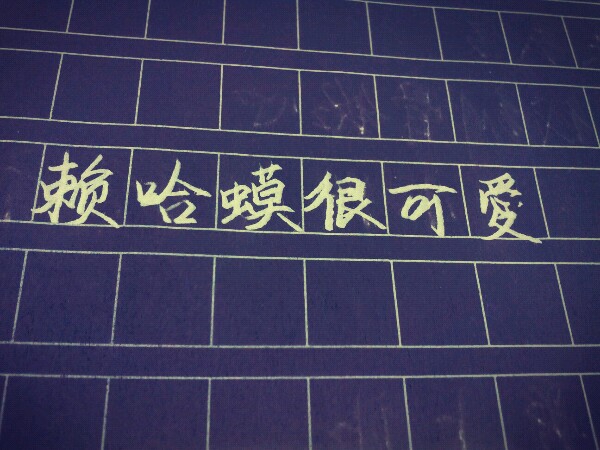 赖哈蟆很可愛